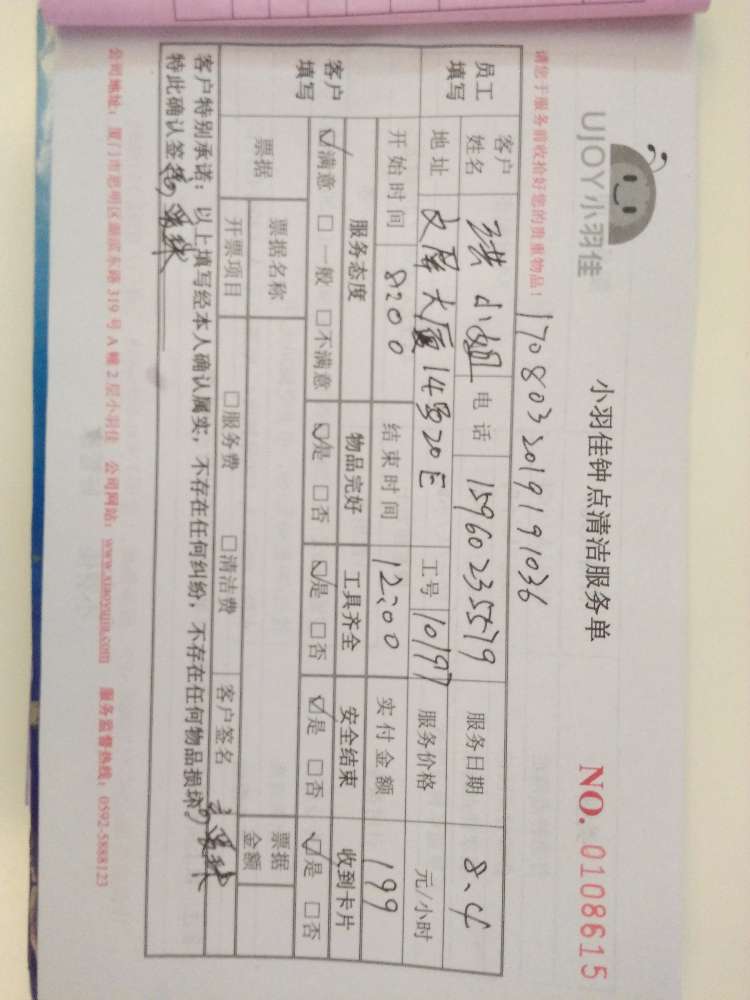 UJOY小羽佳
小羽佳钟点清洁服务单
NO. 0108615
请您于服务前收拾好您的贵重物品！
170803201919 1036
员工填写 客户姓名 洪小姐 电话 15960235579 服务日期 8.4
地址 文屏大厦14号20E 工号 10197 服务价格 元/小时
客户填写 开始时间 8:00 结束时间 12:00 实付金额 199
服务态度 物品完好 工具齐全 安全结束 收到卡片
☑满意 □一般 □不满意 ☑是 □否 ☑是 □否 ☑是 □否 ☑是 □否
票据 票据名称 票据金额
开票项目 □服务费 □清洁费 客户签名
客户特别承诺：以上填写经本人确认属实，不存在任何纠纷，不存在任何物品损坏，
特此确认签名
公司地址：厦门市思明区湖滨东路319号A幢2层小羽佳 公司网站：www.xiaoyujia.com 服务监督热线：0592-5888123